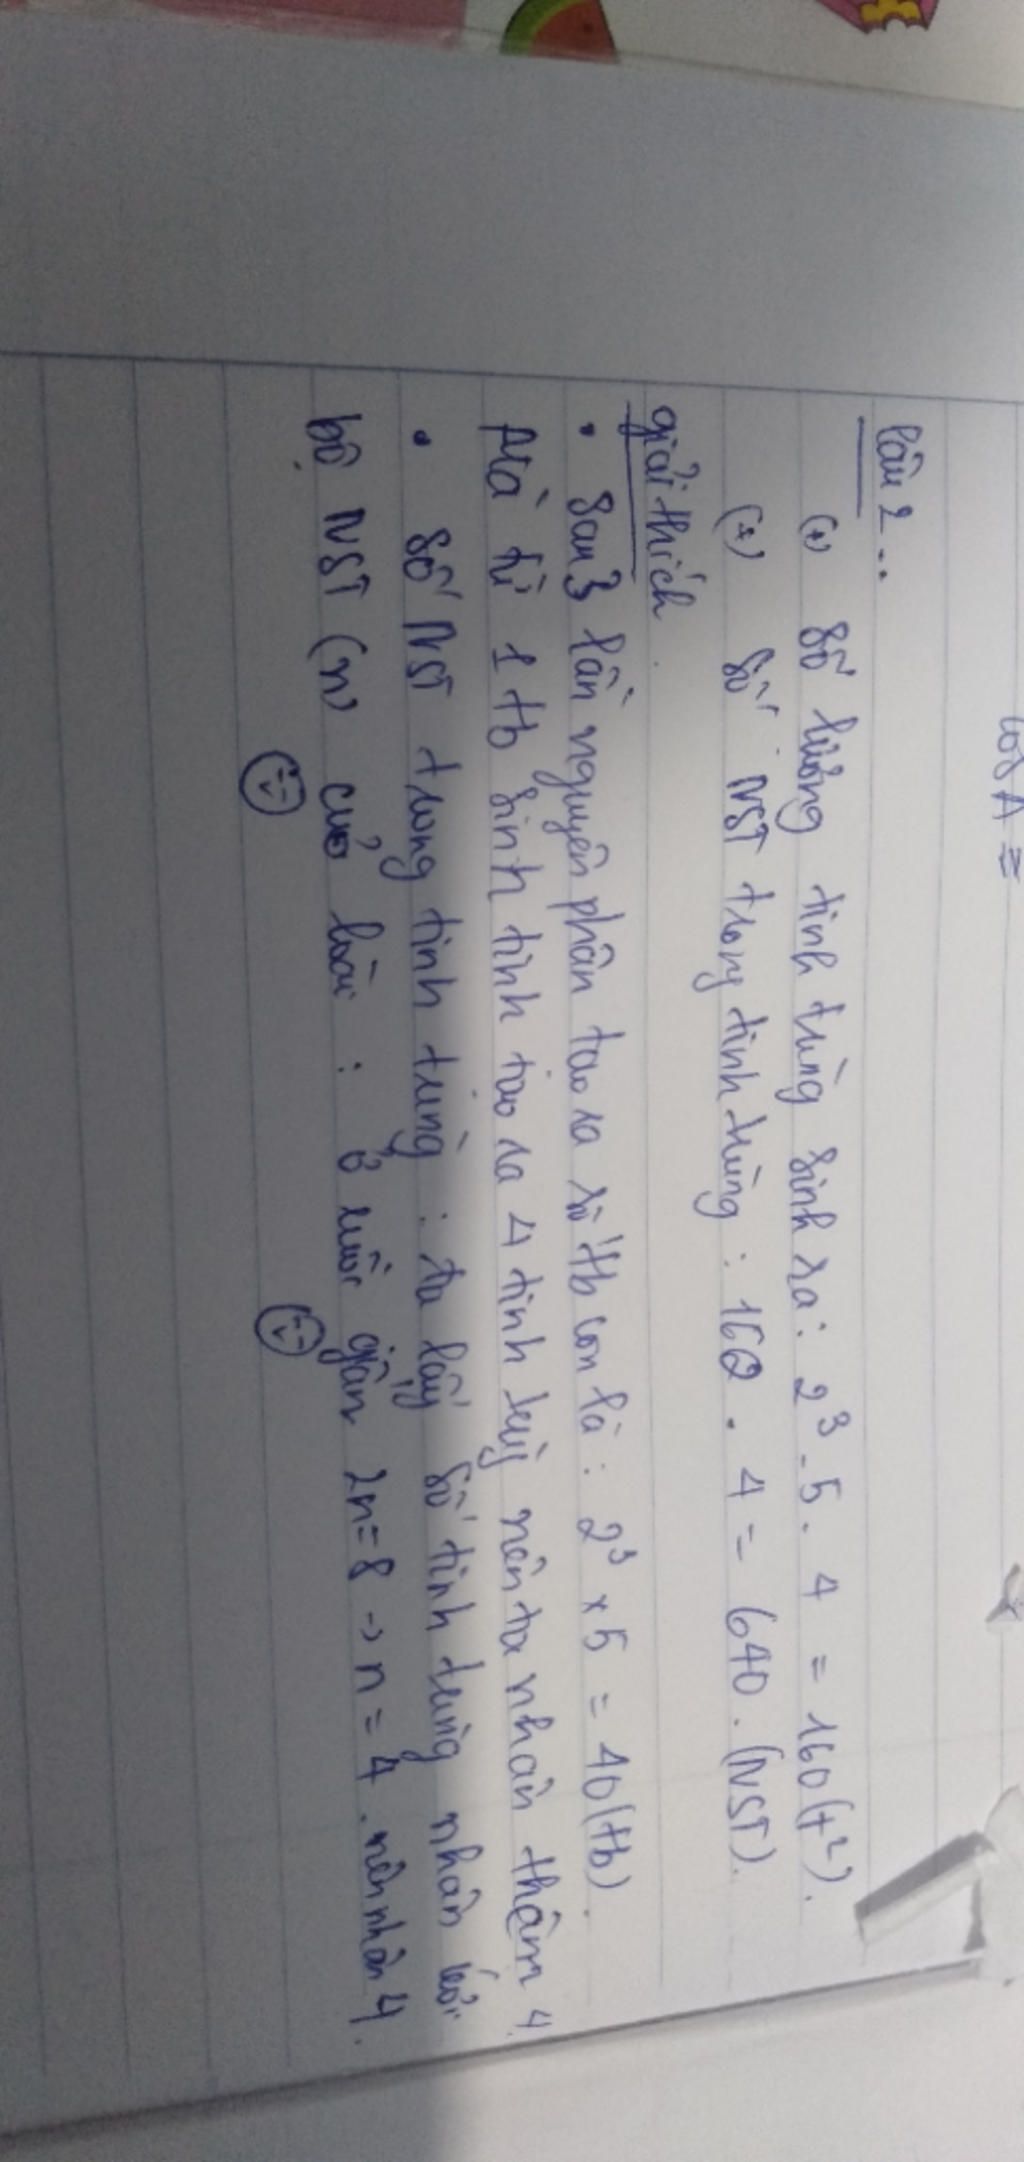 cos A =
Câu 2..
(+) Số lượng tinh trùng sinh ra: 2³.5.4 = 160 (t²).
(+) Số NST trong tinh trùng: 160.4 = 640.(NST).
giải thích
• Sau 3 lần nguyên phân tạo ra số tb con là: 2³ x 5 = 40 (tb).
Mà từ 1 tb sinh tinh tạo ra 4 tinh trùng nên ta nhân thêm 4.
• Số NST trong tinh trùng: ta lấy số tinh trùng nhân với
bộ NST (n) của loài: ở ruồi giấm 2n=8 → n = 4. nên nhân 4.